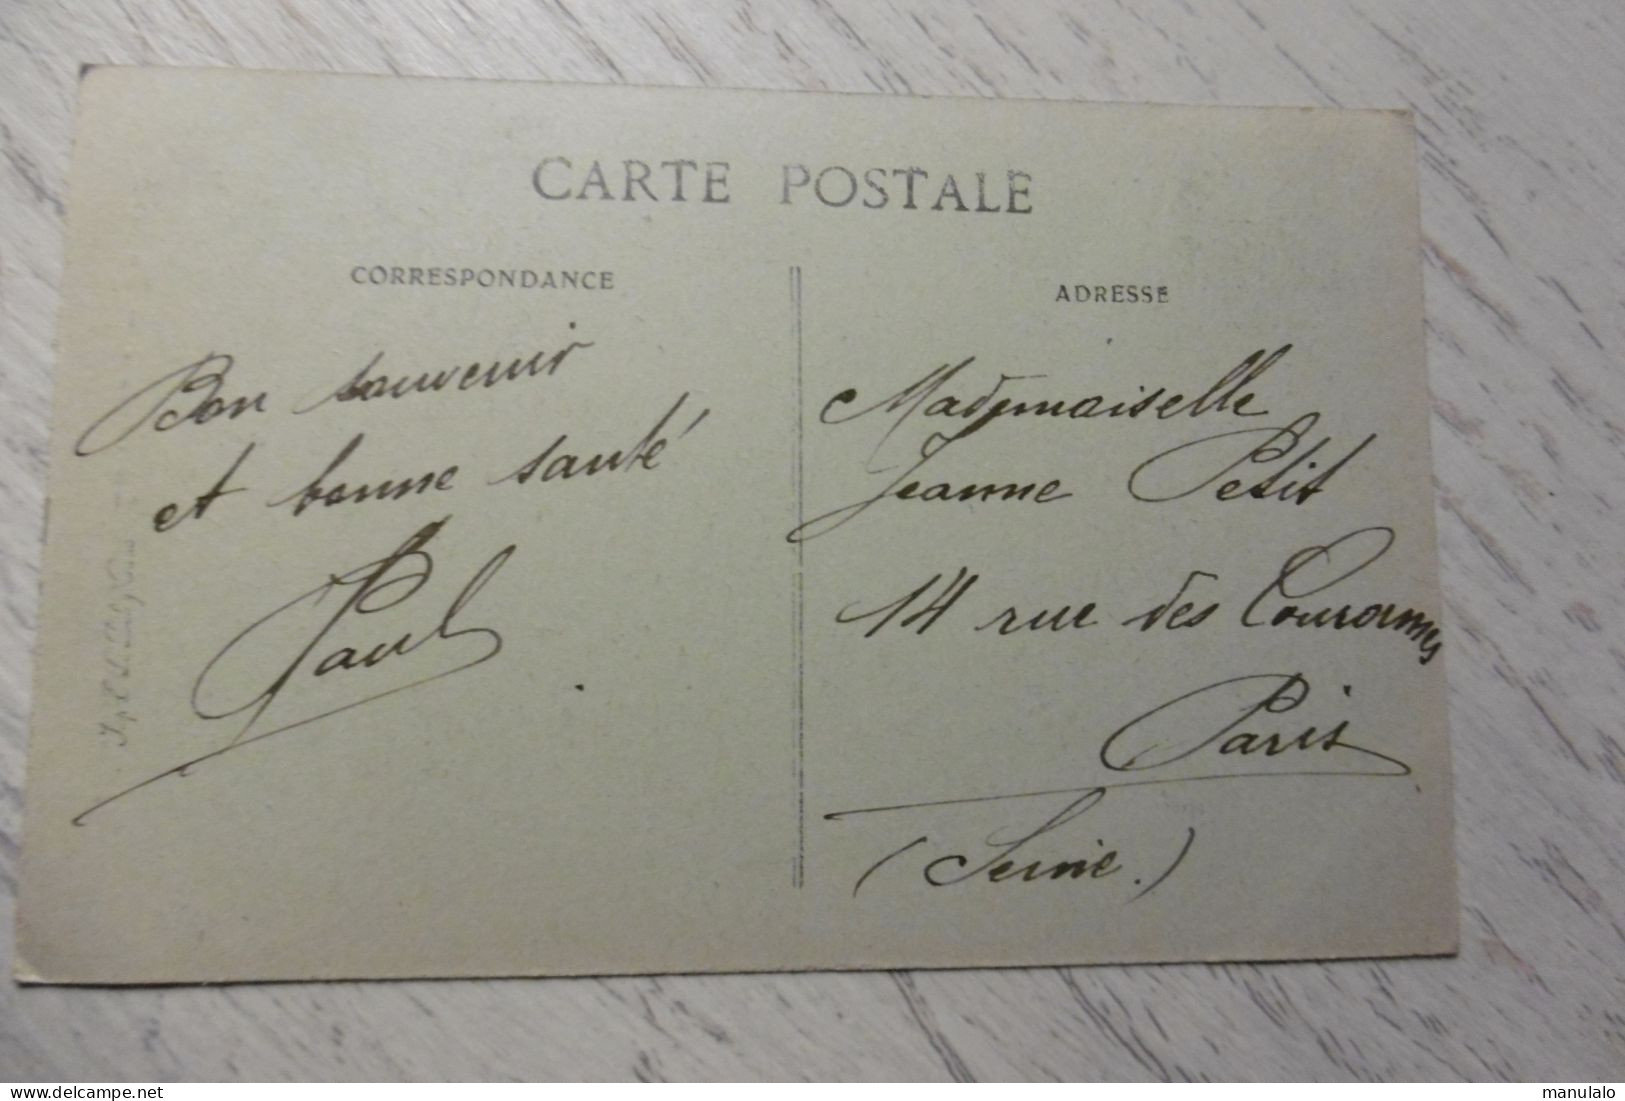 CARTE POSTALE
CORRESPONDANCE
ADRESSE
Bon souvenir
et bonne santé
Paul
Mademoiselle
Jeanne Petit
14 rue des Couronnes
Paris
(Seine.)
delcampe.net
manulalo